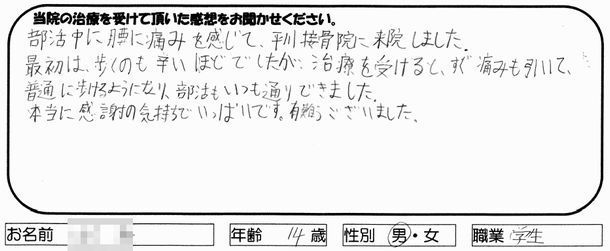 当院の治療を受けて頂いた感想をお聞かせください。
部活中に腰に痛みを感じて、平川接骨院に来院しました。
最初は、歩くのも辛いほどでしたが、治療を受けると、すぐ痛みも引いて、
普通に歩けるようになり、部活もいつも通りできました。
本当に感謝の気持ちでいっぱいです。有難うございました。
お名前 年齢 14歳 性別 男・女 職業 学生